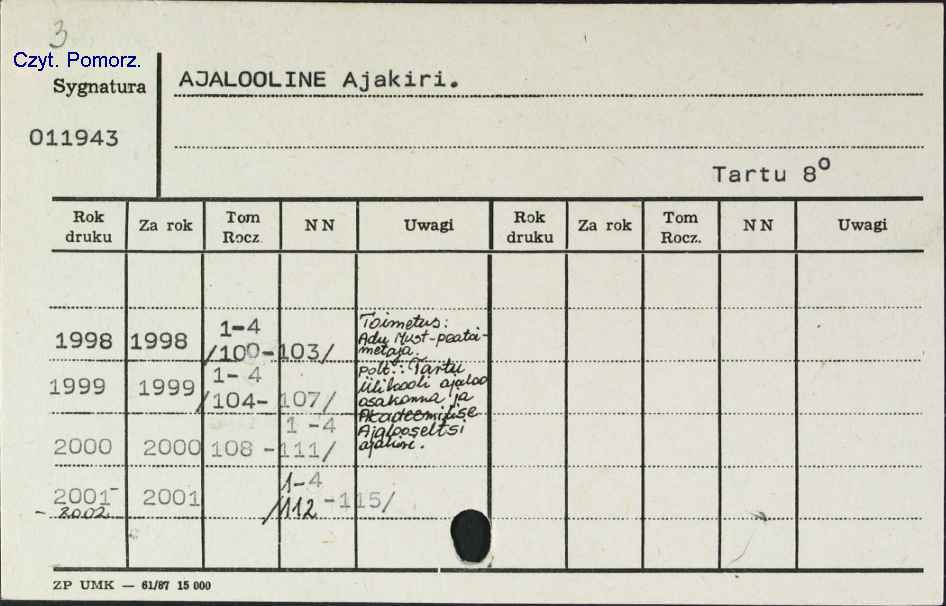 3
Czyt. Pomorz.
Sygnatura
AJALOOLINE Ajakiri.
011943
Tartu 8⁰
Rok druku Za rok Tom Rocz. NN Uwagi Rok druku Za rok Tom Rocz. NN Uwagi
1998 1998 1-4 /100-103/
1999 1999 1-4 /104-107/
2000 2000 108-111/ 1-4
2001- 2001 1-4 /112-115/
-2002
Toimetus:
Adu Must-peatoi-
metaja.
polt.: Tartu
Ülikooli ajaloo
osakonna ja
Akadeemilise
Ajalooseltsi
ajakiri.
ZP UMK — 61/87 15 000